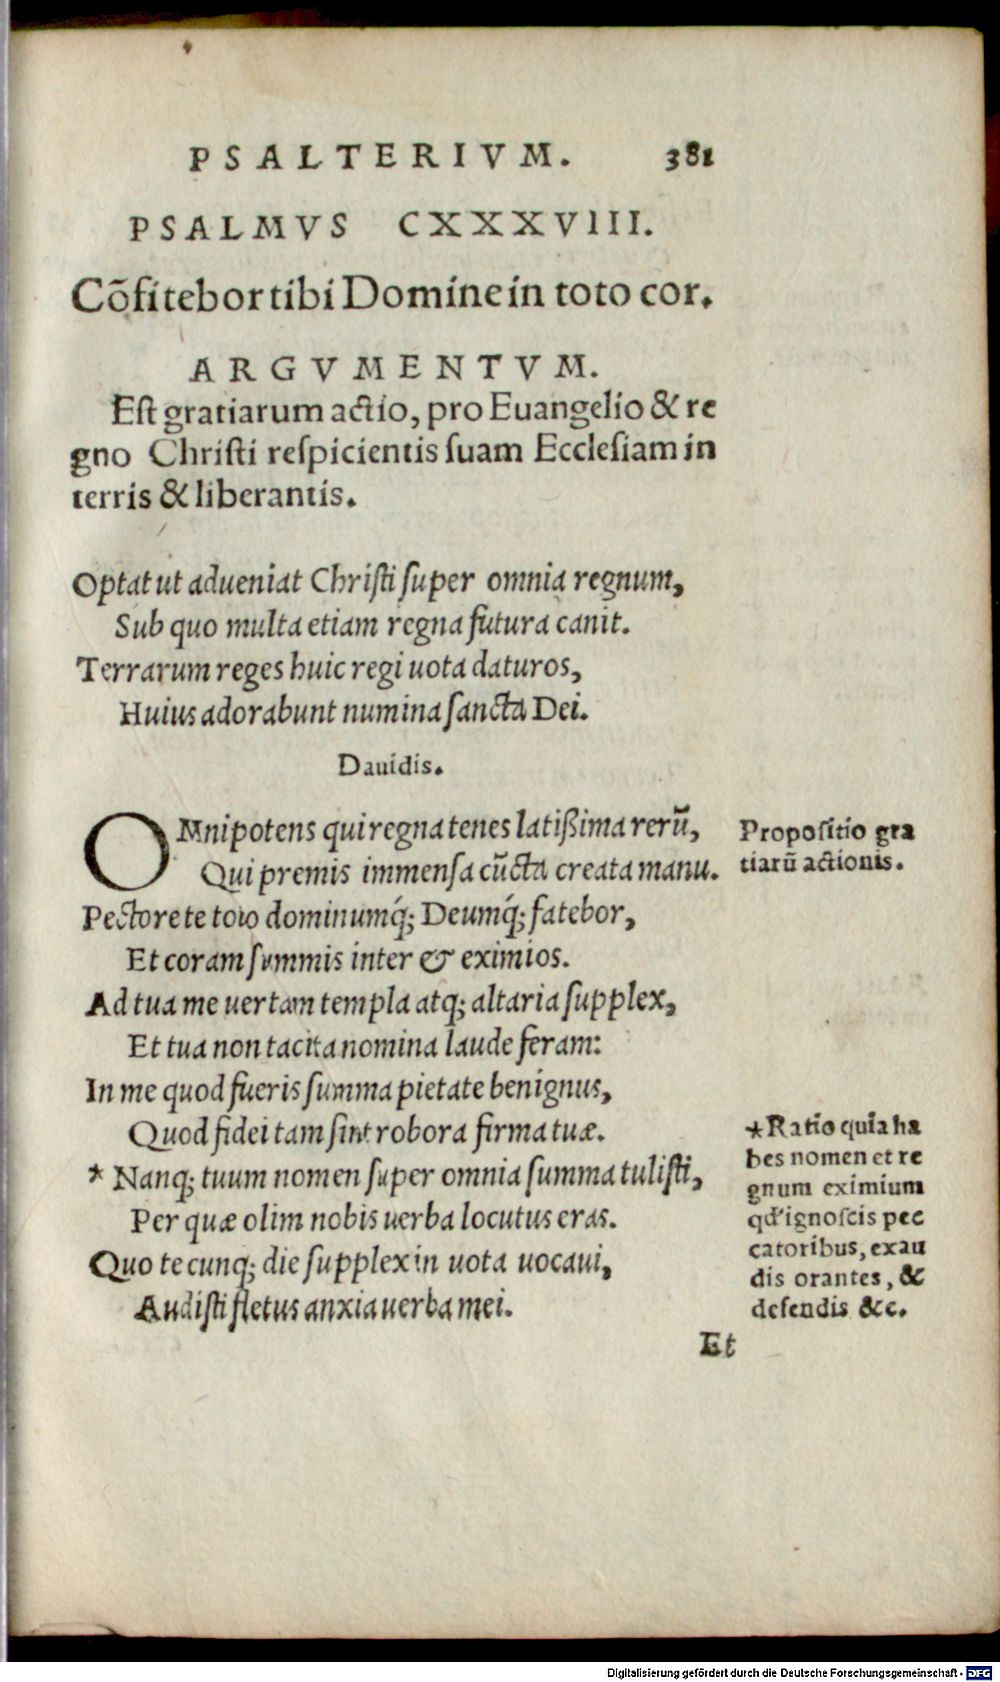 PSALTERIVM. 381
PSALMVS CXXXVIII.
Cōfitebor tibi Domine in toto cor.
ARGVMENTVM.
Est gratiarum actio, pro Euangelio & re
gno Christi respicientis suam Ecclesiam in
terris & liberantis.
Optat ut adueniat Christi super omnia regnum,
Sub quo multa etiam regna futura canit.
Terrarum reges huic regi uota daturos,
Huius adorabunt numina sancta Dei.
Dauidis.
OMnipotens qui regna tenes latißima rerū,
Qui premis immensa cūcta creata manu.
Pectore te toto dominumq́; Deumq́; fatebor,
Et coram summis inter & eximios.
Ad tua me uertam templa atq; altaria supplex,
Et tua non tacita nomina laude feram:
In me quod fueris summa pietate benignus,
Quod fidei tam sint robora firma tuæ.
* Nanq; tuum nomen super omnia summa tulisti,
Per quæ olim nobis uerba locutus eras.
Quo te cunq; die supplex in uota uocaui,
Audisti fletus anxia uerba mei.
Et
Propositio gra
tiarū actionis.
*Ratio quia ha
bes nomen et re
gnum eximium
qď ignoscis pec
catoribus, exau
dis orantes, &
defendis &c.
Digitalisierung gefördert durch die Deutsche Forschungsgemeinschaft - DFG